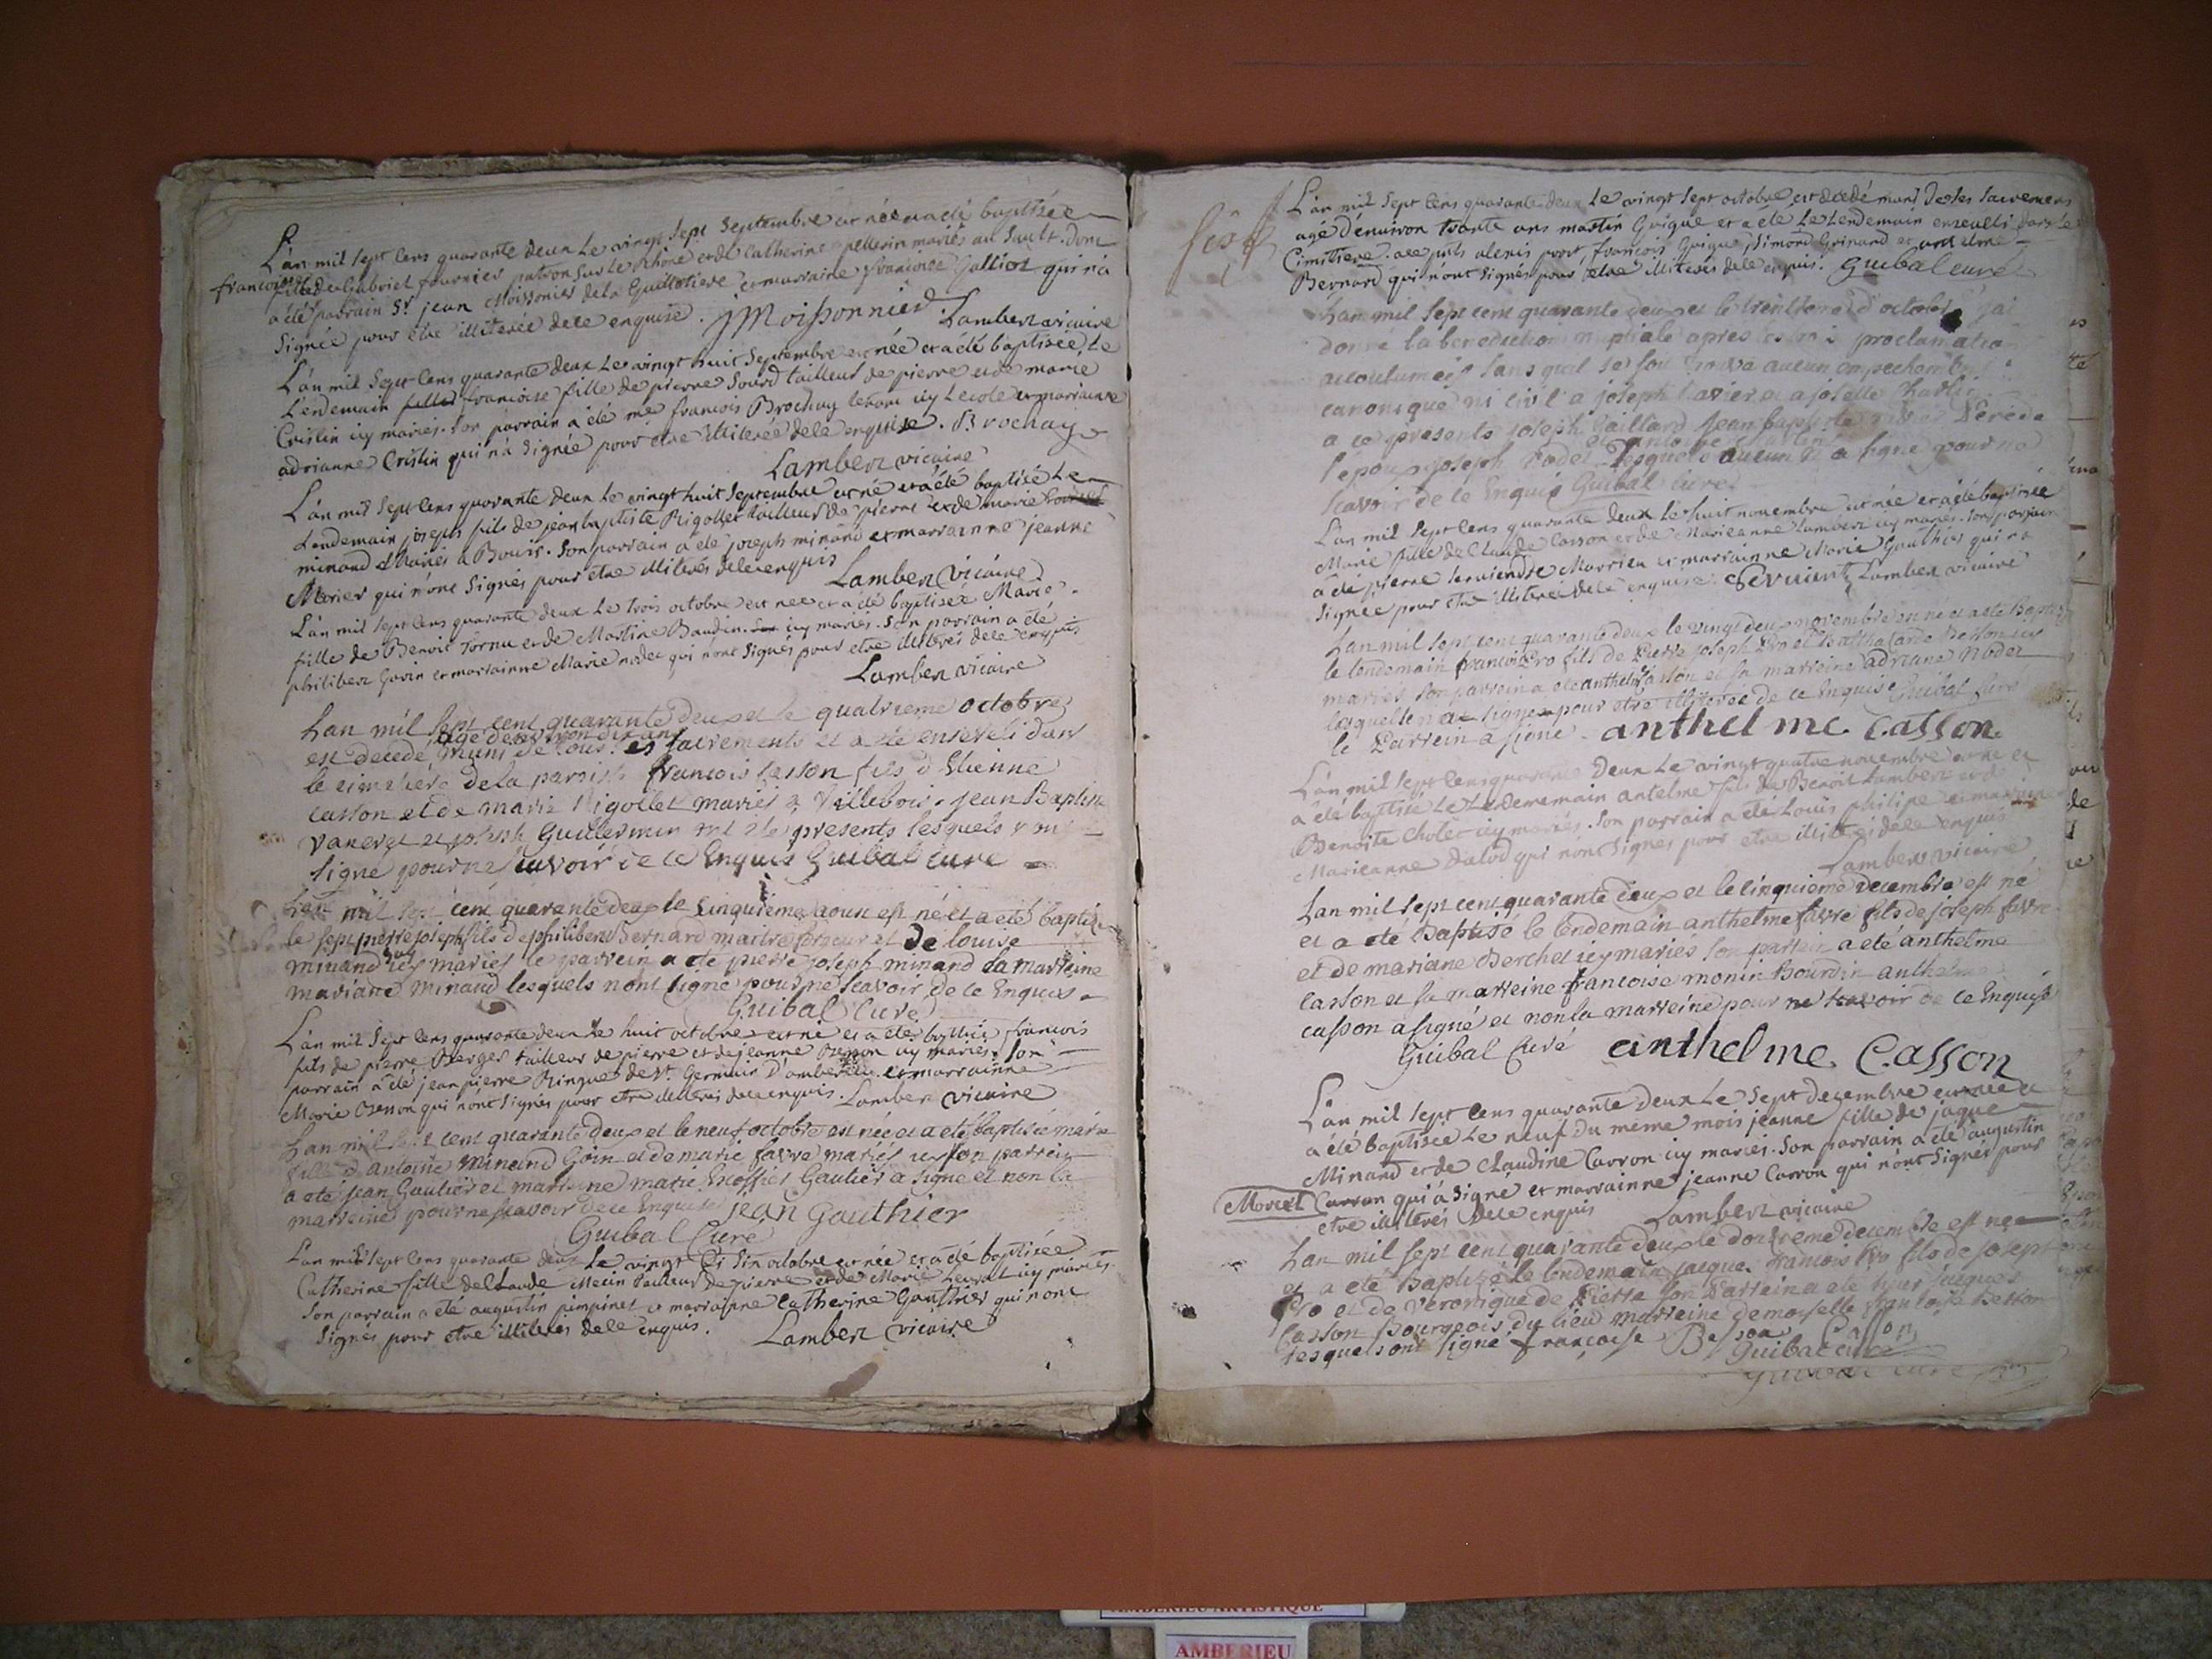 L'an mil sept cens quarante deux le vingt sept septembre est née et a été baptisée
francoise fille de Gabriel fournier patron sur le Rhône et de Catherine pellerin mariés au Sault. dont
a été parrain Sr jean Moissonier de la Guillotiere et marraine francoise Galliot qui n'a
signée pour etre illiterée de ce enquise. JMoissonnier Lambert vicaire
L'an mil sept cens quarante deux le vingt huit septembre est née et a été baptisée le
Lendemain francoise fille de pierre Sourd tailleur de pierre et de marie
Cristin icy mariés. son parrain a été me francois Brochay tenant icy Lecole et marrainne
adrianne Cristin qui n'a signée pour etre illiterée de ce enquise. Brochay
Lambert vicaire
L'an mil sept cens quarante deux le vingt huit septembre est né et a été baptisé le
Lendemain joseph fils de jean baptiste Rigollet tailleur de pierre et de marie
minand mariés a Bouis. son parrain a été joseph minand et marrainne jeanne
Morier qui n'ont signés pour etre illiterés de ce enquis Lambert vicaire
L'an mil sept cens quarante deux le trois octobre est née et a été baptisée Marie
fille de Benoit Tornu et de Martine Baudin icy mariés. son parrain a été
philibert Gavin et marrainne Marie nodet qui n'ont signés pour etre illiterés de ce enquis
Lambert vicaire
Lan mil sept cent quarante deux et le quatrieme octobre
agé denviron dix ans
est decedé muni de tous les sacrements et a été enseveli dans
le cimetiere de la paroisse francois Casson fils d'Etienne
casson et de marie Rigollet mariés a Villebois. jean Baptiste
vaneret et joseph Guillermin ont été presents lesquels n'ont
signé pour ne scavoir de ce Enquis Guibal curé
Lan mil sept cent quarante deux le cinquieme aoust est né et a eté baptizé
le sept pierre joseph fils de philibert Bernard maitre et de louise
minand icy mariés le parrein a ete pierre joseph minand la marreine
mariane minand lesquels nont signé pour ne scavoir de ce Enquis
Guibal Curé
L'an mil sept cens quarante deux le huit octobre est né et a été baptisé francois
fils de pierre Berger tailleur de pierre et de jeanne Besson icy mariés. son
parrain a été jean pierre Ringue de St Germain D'amberieu et marrainne
Marie Besson qui n'ont signés pour etre illiterés de ce enquis. Lambert vicaire
Lan mil sept cent quarante deux et le neuf octobre est née et a eté baptisée marie
fille d'antoine minand Goin et de marie favre mariés icy son parrein
a eté jean Gautier et marreine marie Gautier a signé et non la
marreine pour ne scavoir de ce Enquise jean Gauthier
Guibal Curé
L'an mil sept cens quarante deux le vingt six octobre est née et a été baptisée
Catherine fille de Claude Merin tailleur de pierre et de Marie Levrat icy mariés
son parrain a été augustin pimpinet et marrainne Catherine Gauthier qui n'ont
signés pour etre illiterés de ce enquis. Lambert vicaire
L'an mil sept cens quarante deux le vingt sept octobre est decedé muni de ses sacremens
agé d'environ trante ans martin Guigue et a été le Lendemain enseveli dans le
Cimitiere. francois Guigue, Simond Grinand et antelme
Bernard qui n'ont signés pour etre illiterés de ce enquis. Guibal curé
Lan mil sept cent quarante deux et le d'octobre j'ai
donné la benediction nuptiale apres les trois proclamations
accoutumées sans qu'il se soit trouvé aucun empechement
canonique ni civil a joseph et a josette
a ce presents joseph Gaillard jean baptiste
l'epoux joseph nodet lesquels aucun n'a signé pour ne
scavoir de ce Enquis Guibal curé
L'an mil sept cens quarante deux le huit novembre est née et a été baptisée
Marie fille de Claude Casson et de Marieanne Lambert icy mariés. son parrain
a été pierre et marrainne Marie Gauthier qui n'a
signée pour etre illiterée de ce enquise. Lambert vicaire
Lan mil sept cent quarante deux le vingt deux novembre est né et a eté baptizé
le lendemain francois pro fils de Pierre joseph Pro et Besson icy
mariés son parrein a ete anthelme Casson et la marreine adriane Nodet
laquelle n'a signé pour etre illiterée de ce Enquise Guibal Curé
le Parrein a signé. anthelme Casson
L'an mil sept cens quarante deux le vingt quatre novembre est né et
a été baptisé le Lendemain antelme fils de Benoit Lambert et de
Benoite Cholet icy mariés. son parrain a été Louis philipe et marrainne
Marieanne qui n'ont signés pour etre illiterés de ce enquis
Lambert vicaire
Lan mil sept cent quarante deux et le cinquieme decembre est né
et a eté Baptisé le lendemain anthelme favre fils de joseph favre
et de mariane Berchet icy mariés son parrein a eté anthelme
Casson et la marreine francoise monin Bourdin anthelme
casson a signé et non la marreine pour ne scavoir de ce Enquise
Guibal Curé anthelme Casson
L'an mil sept cens quarante deux le sept decembre est née et
a été baptisée le neuf du meme mois jeanne fille de jaque
Minand et de Claudine Carron icy mariés. son parrain a été augustin
Morcel Carron qui a signé et marrainne jeanne Carron qui n'ont signés pour
etre illiterés de ce enquis Lambert vicaire
Lan mil sept cent quarante deux le douzieme decembre est né
et a eté Baptizé le lendemain jacque francois Pro fils de joseph
Pro et de veronique de Pierre son Parrein a ete sieur jacques
Casson Bourgeois du lieu marreine demoiselle francoise Besson
lesquels ont signé francoise Besson Casson
Guibal curé
AMBERIEU ARTISTIQUE
AMBERIEU